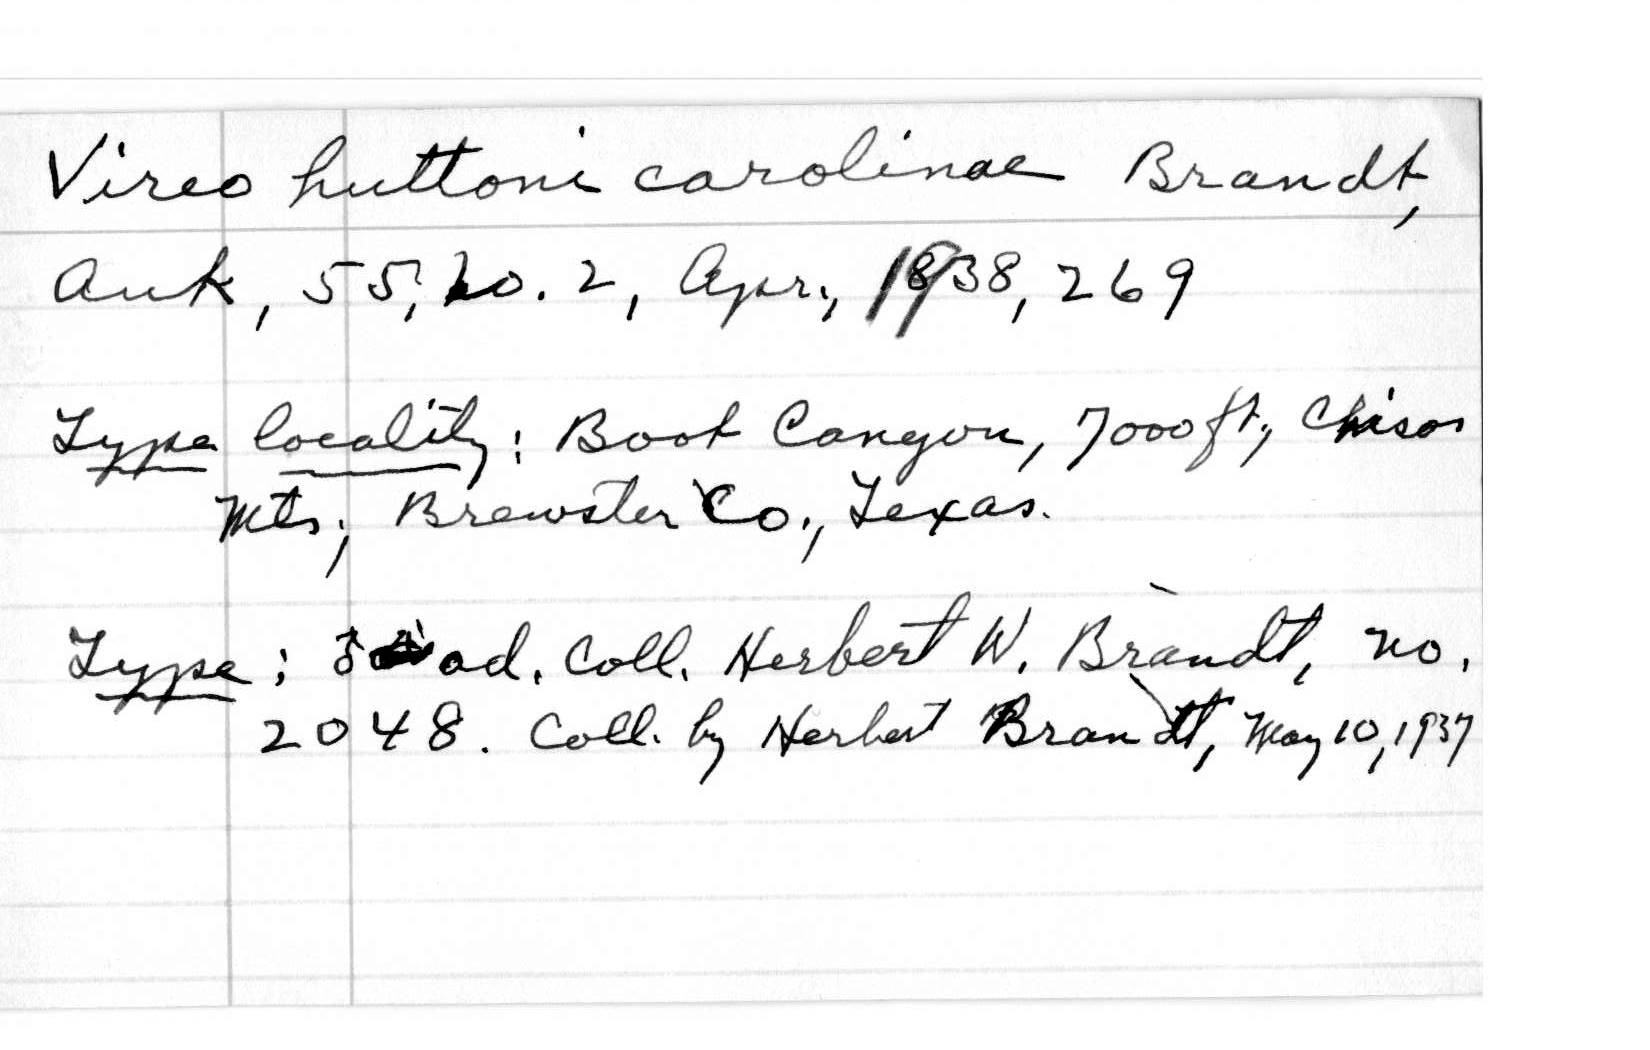 Vireo huttoni carolinae Brandt,
Auk, 55, no. 2, Apr., 1938, 269
Type locality: Boot Canyon, 7000 ft., Chisos
Mts., Brewster Co., Texas.
Type: ad. Coll. Herbert W. Brandt, no.
2048. Coll. by Herbert Brandt, May 10, 1937